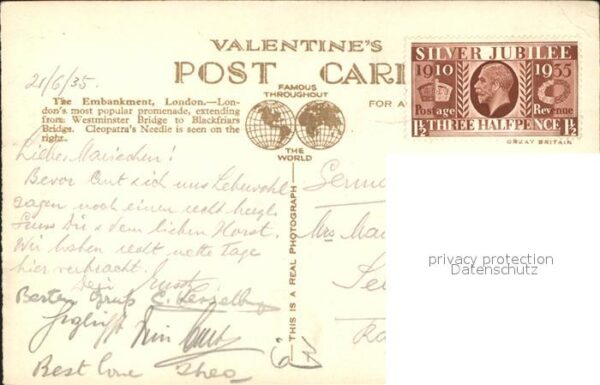 VALENTINE'S
POST CAR
21/6/35.
FAMOUS
THROUGHOUT
THE
WORLD
FOR A
The Embankment, London.—Lon-
don's most popular promenade, extending
from Westminster Bridge to Blackfriars
Bridge. Cleopatra's Needle is seen on the
right.
SILVER JUBILEE
1910 1935
Postage Revenue
1½ THREE HALFPENCE 1½
GREAT BRITAIN
Liebe Mariechen!
Bevor uns Lebewohl
sagen noch einen recht herzl.
Gruss Dir & dem lieben Horst.
Wir haben recht nette Tage
hier verbracht.
Dein
Besten Gruß C.
Best love Theo
THIS IS A REAL PHOTOGRAPH
Germa
Mrs Ma
privacy protection
Datenschutz